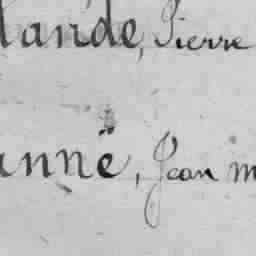 lande, Pierre
annë, Jean m